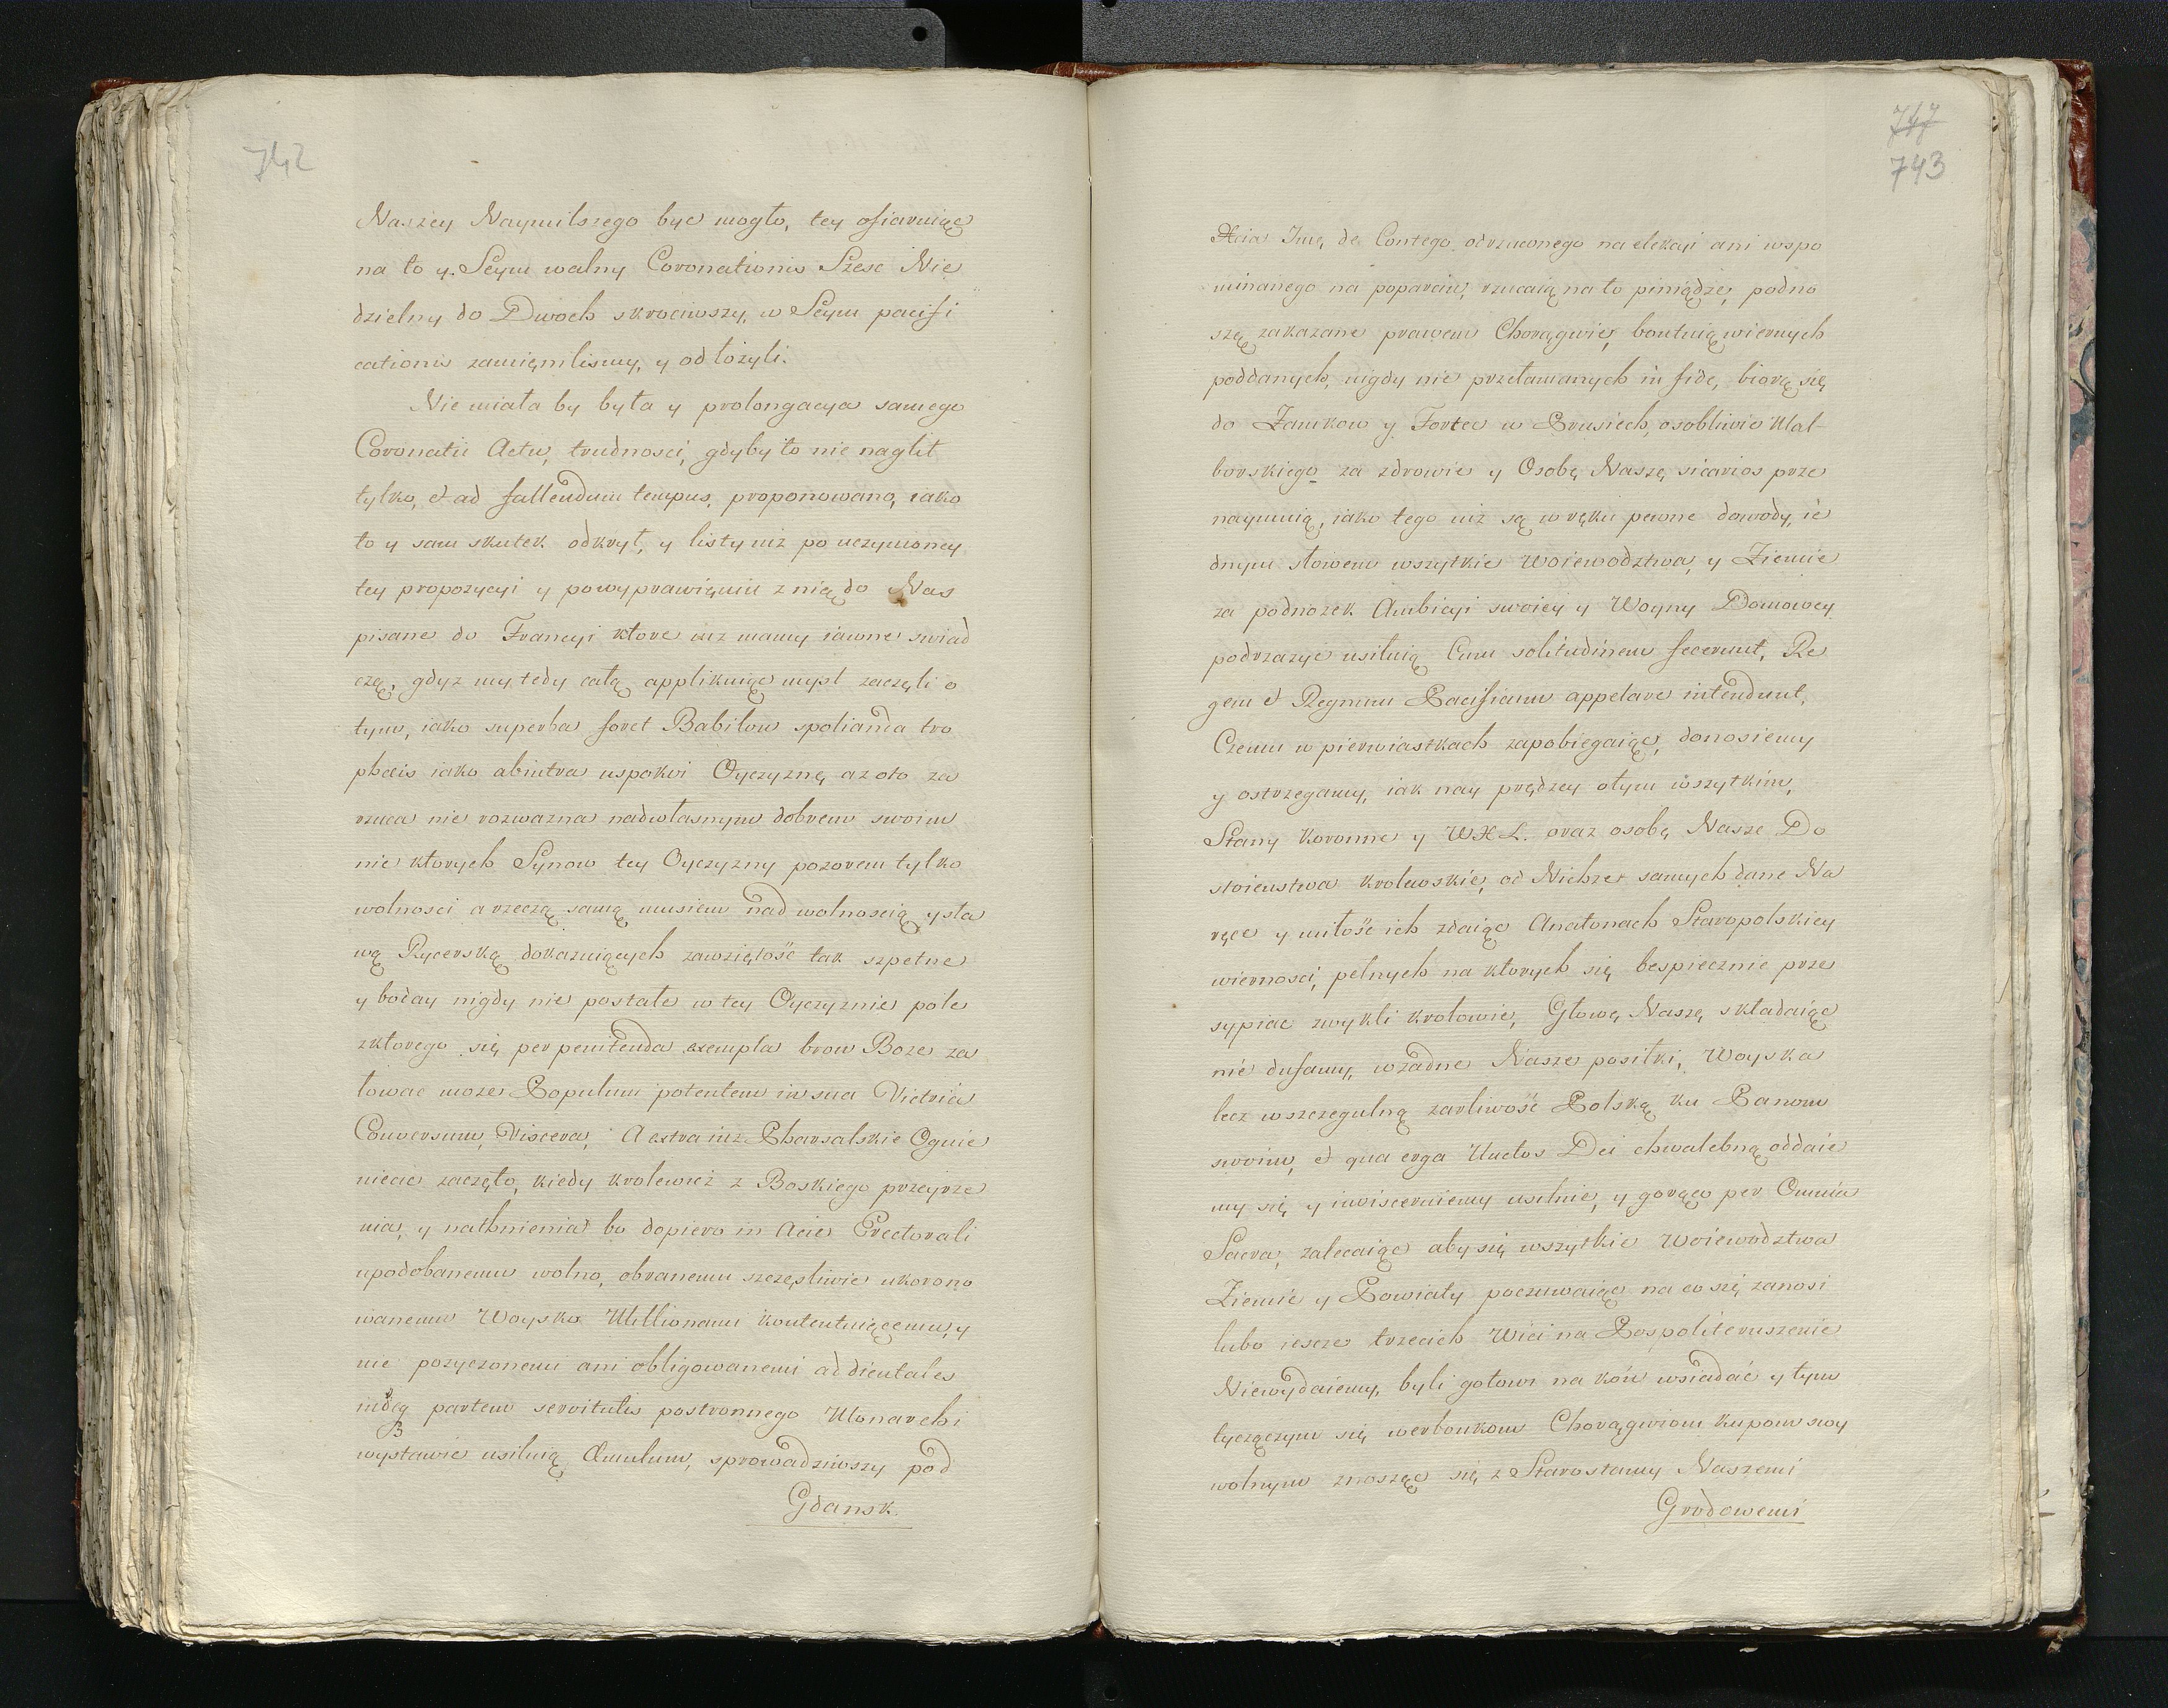 742
Naszey Naymilszego być mogło, tey ofiaruiąc
na to y Seym walny Coronationis Szesc Nie
dzielny do Dwoch skrociwszy, w Seym pacifi
cationis zamięnilismy, y odłożyli.
Nie miała by była y prolongacya samego
Coronatii Actu, trudnosci, gdyby to nie naglił
tylko, et ad fallendum tempus, proponowano, iako
to y sam skutek odkrył, y listy iuz po uczynioney
tey propozycyi y powyprawięniu z nią do Nas
pisane do Francyi ktore iuz mamy iawne swiad
czą, gdyz my tedy całą applikuiąc mysl zaczęli o
tym, iako superba foret Babilon spolianda tro
phæis iako abintra uspokoi Oyczyznę, az oto za
rzuca nie rozwazna nadwłasnym dobrem swoim
nie ktorych Synow tey Oyczyzny pozorem tylko
wolnosci a rzeczą samą musiem nad wolnoscią y sła
wą Rycerską dokazuiących zawziętość tak szpetne
y boday nigdy nie postałe w tey Oyczyznie pole
z ktorego się per penitenda exempla bron Boze za
łowac moze Populum potentem in sua Victria
Conversum, Viscera, A extra iuz Pharsalskie Ognie
niecic zaczęto, kiedy krolewić z Boskiego przeyrze
nia, y nathnienia bo dopiero in Acie Erectorali
upodobanemu wolno, obranemu szczęsliwie ukorono
wanemu Woysko Millionami kontentuiącemu, y
nie pozyczonemi ani obligowanemi ad dientales
partem servitutis postronnego Monarchi
wystawic usiłuią Æmulum, sprowadziwszy pod
Gdansk.
747
743
Xcia Imę de Contego odrzuconego na elekcyi ani wspo
minanego na poparciu, rzucaią na to pieniądze, podno
szą zakazane prawem Chorągwie, bontuią wiernych
poddanych, nigdy nie przełamanych in fide, biorą się
do Zamkow y Fortec w Prusiech, osobliwie Mal-
borskiego za zdrowie y Osobę Naszę sicarios prze
naymuią, iako tego iuz są w ręku pewne dowody, ie
dnym słowem wszytkie Woiewodztwa, y Ziemie
za podnozek Ambicyi swoiey y Woyny Domowey
podrzazyc usiłuią Cum solitudinem fecerunt, Re
gem et Regnum Pacificum appelare intendunt,
Czemu w pierwiastkach zapobiegaiąc, donosiemy
y ostrzegamy, iak nay prędzey otym wszytkim,
Stany Koronne y WXL. oraz osobę Nasze Do
stoienstwa krolewskie, od Nichze samych dane Na
ręce y miłość ich zdaiąc Anatonach Staropolskiey
wiernosci, pełnych na ktorych się bespiecznie prze
sypiac zwykli krolowie, Głowę Naszę składaiąc
nie dufamy, wżadne Nasze posiłki, Woyska
lecz wszczegulną zarliwość Polską ku Panom
swoim, et qua erga Unctos Dei chwalebną oddaie
my się y inwisceruiemy usilnie, y gorąco per Omnia
Sacra, zalecaiąc aby się wszytkie Woiewodztwa
Ziemie y Powiaty poczuwaiąc na co się zanosi
lubo iescze trzecich Wici na Pospolite ruszenie
Niewydaiemy, byli gotowi na koń wsiadać y tym
tyczączym się werbunkom Chorągwiom kupom swy
wolnym znosząc się z Starostamy Naszemi
Grodowemi